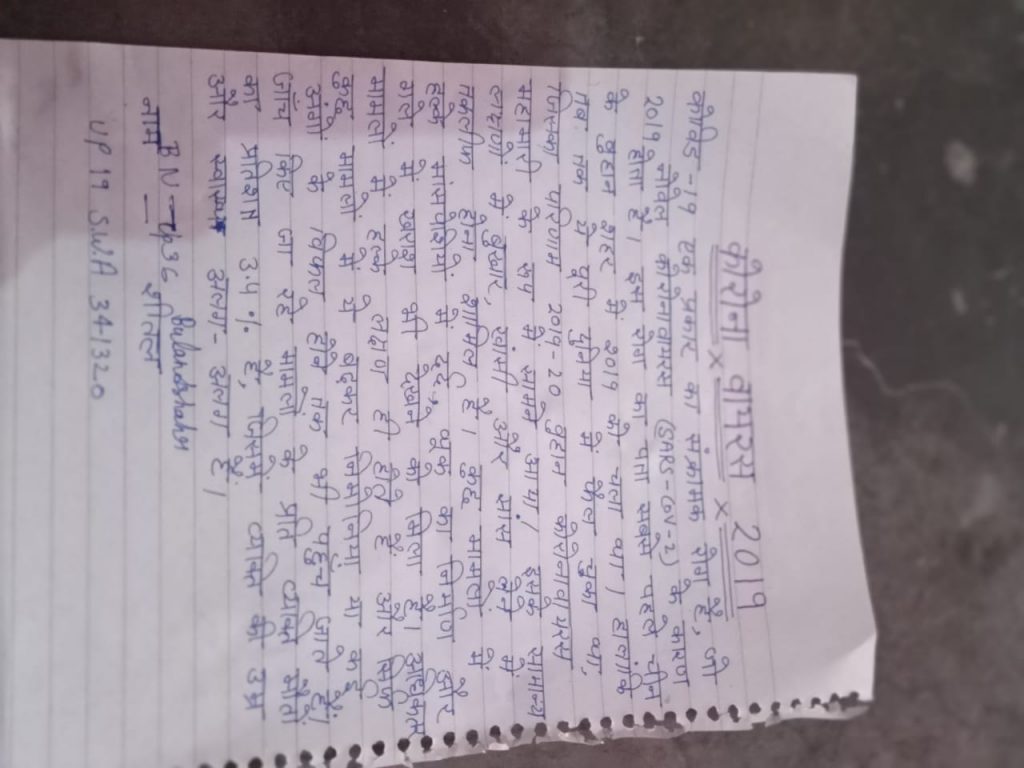 कोरोना वायरस 2019
कोविड -19 एक प्रकार का संक्रामक रोग है, जो
2019 नोवेल कोरोनावायरस (SARS-CoV-2) के कारण
होता है। इस रोग का पता सबसे पहले चीन
के वुहान शहर में 2019 को चला था। हालांकि
तब तक ये पूरी दुनिया में फैल चुका था,
जिसका परिणाम 2019-20 वुहान कोरोनावायरस
महामारी के रूप में सामने आया। इसके सामान्य
लक्षणों में बुखार, खांसी और सांस लेने में
तकलीफ होना शामिल है। कुछ मामलो में
हल्के मांसपेशियों में दर्द, थूक का निर्माण और
गले में खराश भी देखने को मिला है। अधिकतर
मामलो में हल्के लक्षण ही होते है और सिर्फ
कुछ मामलो में ये बढ़कर निमोनिया या कई
अंगो के विफल होने तक भी पहुंच जाते है।
जांच किए जा रहे मामलो के प्रति व्यक्ति मौतों
का प्रतिशत 3.4 % है, जिसमे व्यक्ति की उम्र
और स्वास्थ अलग - अलग है।
BN - 1036 bulandshahr
नाम — शीतल
UP 19 SWA 341320